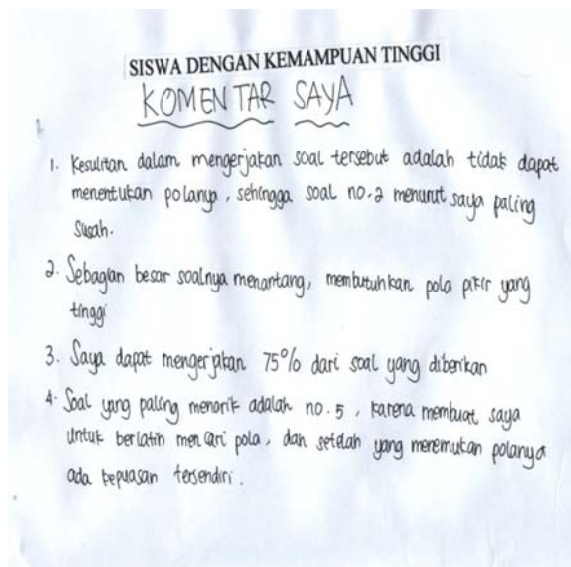 SISWA DENGAN KEMAMPUAN TINGGI
KOMENTAR SAYA
1. Kesulitan dalam mengerjakan soal tersebut adalah tidak dapat
menentukan polanya, sehingga soal no.2 menurut saya paling
susah.
2. Sebagian besar soalnya menantang, membutuhkan pola pikir yang
tinggi
3. Saya dapat mengerjakan 75% dari soal yang diberikan
4. Soal yang paling menarik adalah no.5, karena membuat saya
untuk berlatih mencari pola, dan setelah yang menemukan polanya
ada kepuasan tersendiri.